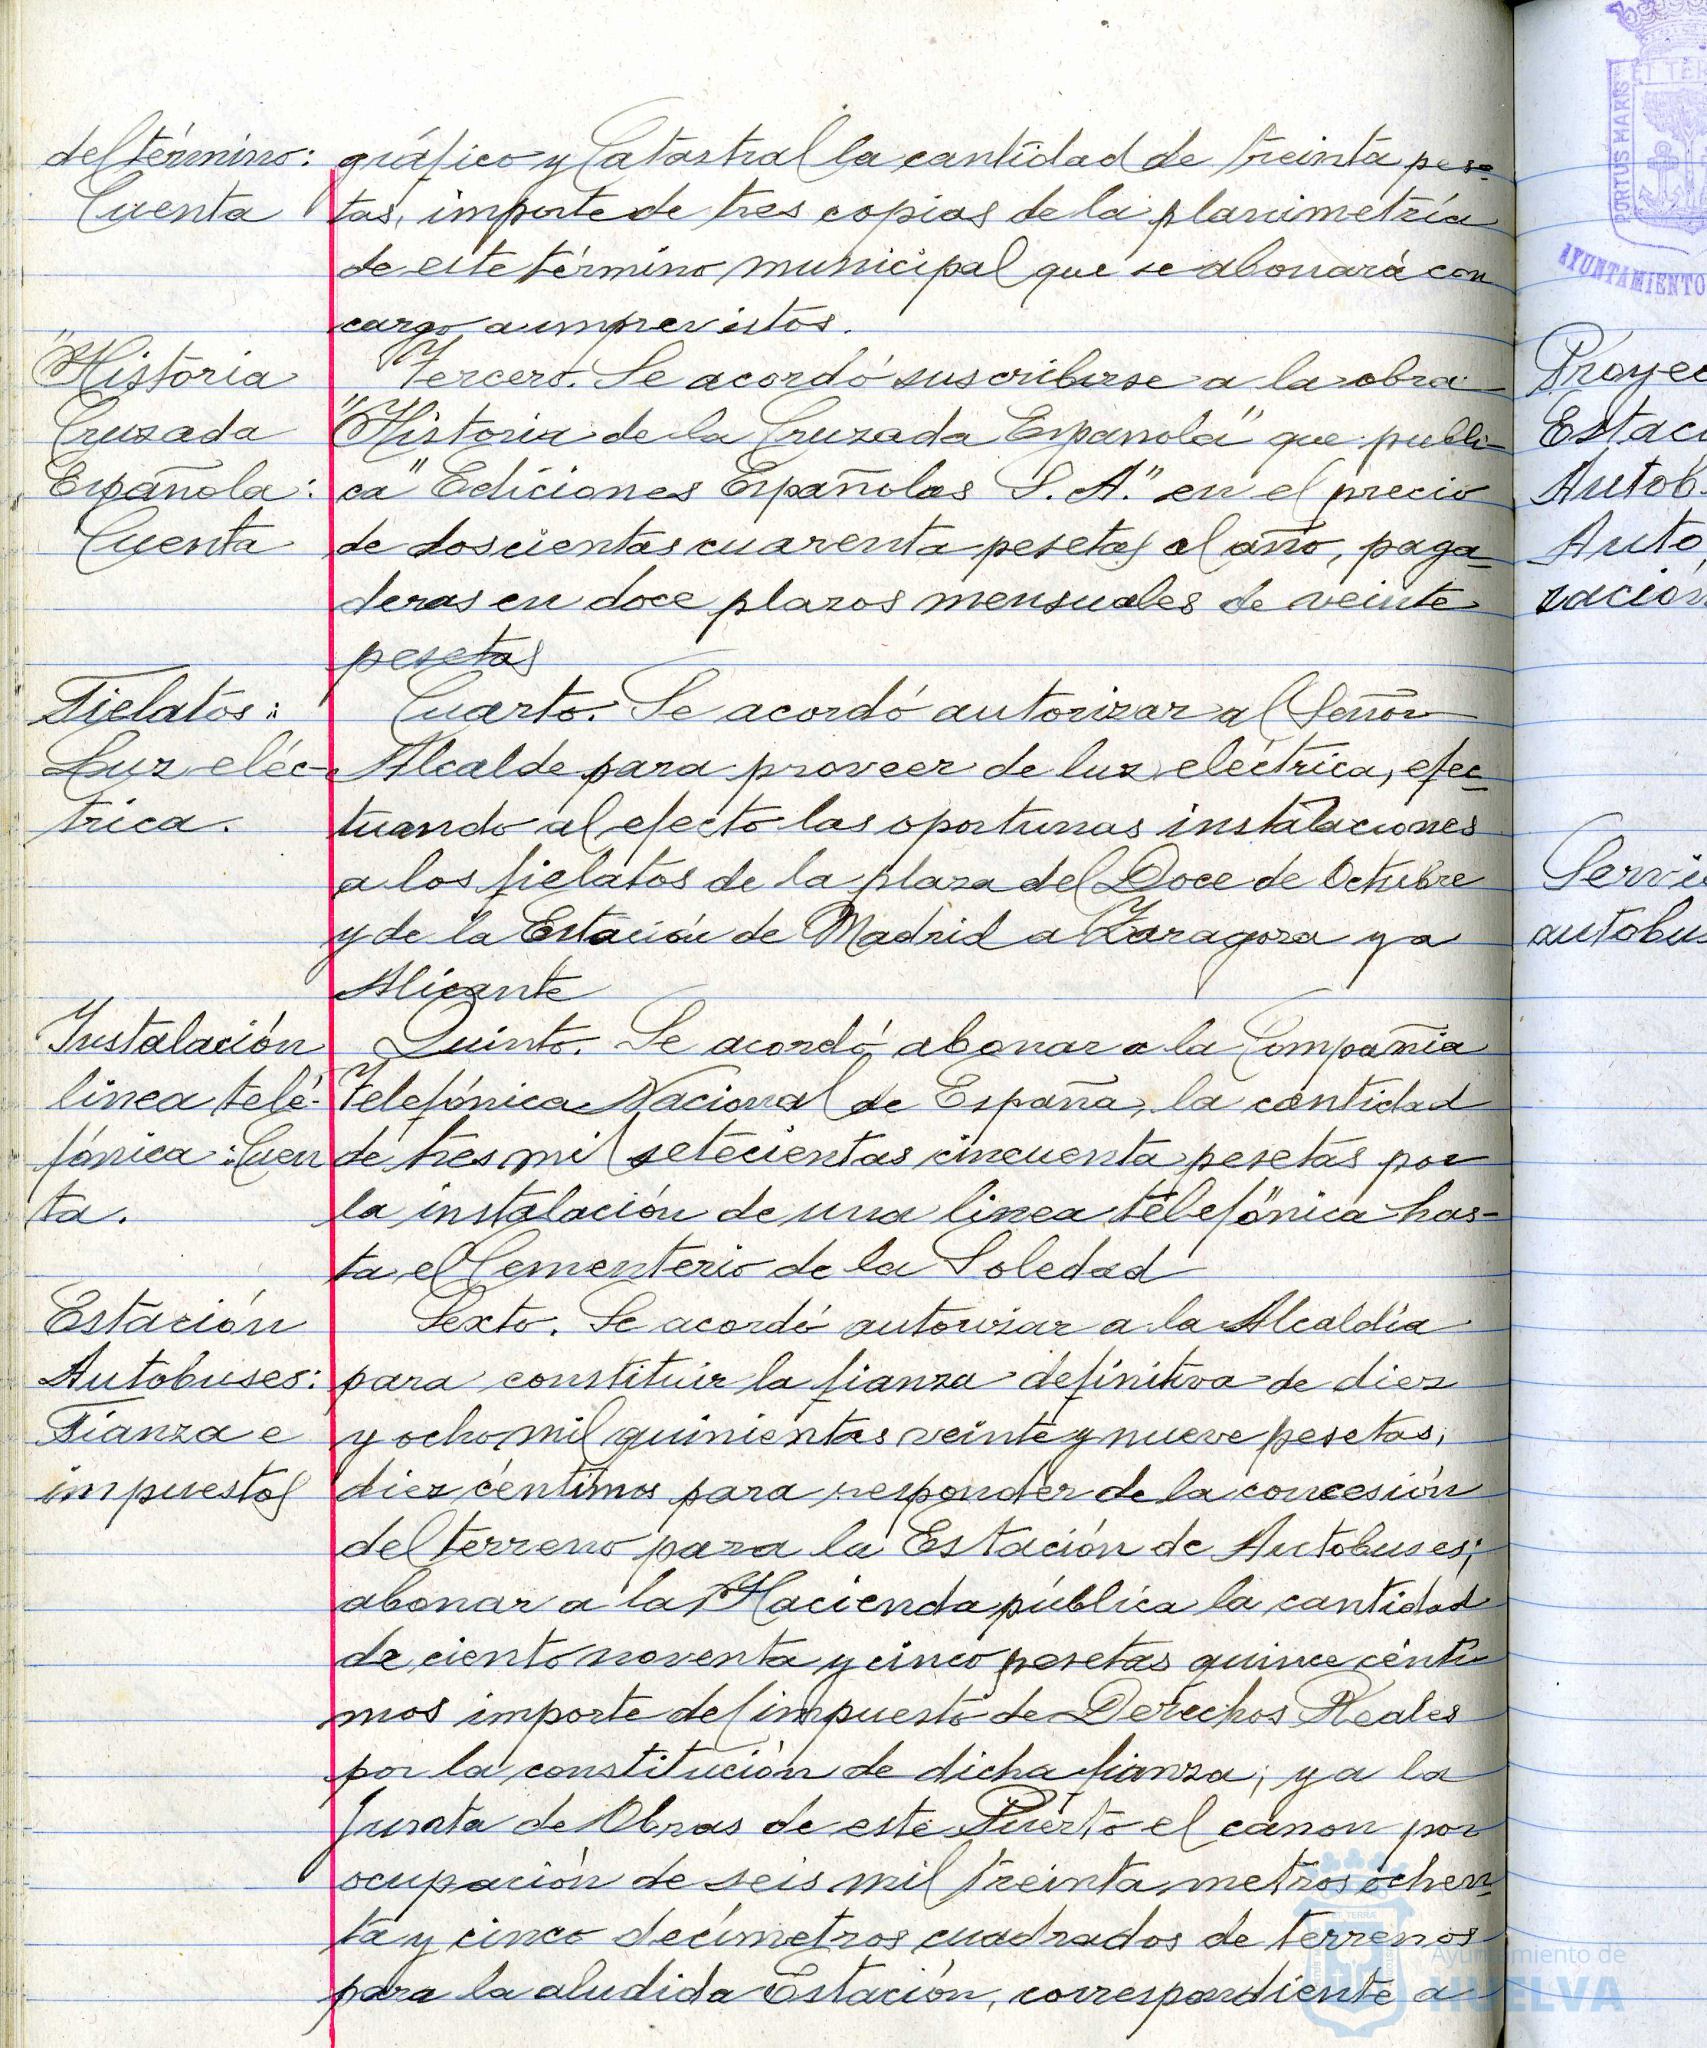 del término:
Cuenta
gráfico y Catastral la cantidad de treinta pese-
tas, importe de tres copias de la planimetría
de este término municipal que se abonará con
cargo a imprevistos.
"Historia
Cruzada
Española:
Cuenta
Tercero. Se acordó suscribirse a la obra
"Historia de la Cruzada Española" que publi-
ca "Ediciones Españolas S. A." en el precio
de doscientas cuarenta pesetas al año, paga-
deras en doce plazos mensuales de veinte
pesetas
Fielatos:
Luz eléc-
trica.
Cuarto. Se acordó autorizar al Señor
Alcalde para proveer de luz eléctrica, efec-
tuando al efecto las oportunas instalaciones
a los fielatos de la plaza del Doce de Octubre
y de la Estación de Madrid a Zaragoza y a
Alicante
Instalación
linea tele-
fónica: Cuen
ta.
Quinto. Se acordó abonar a la Compañia
Telefónica Nacional de España, la cantidad
de tres mil setecientas cincuenta pesetas por
la instalación de una linea telefónica has-
ta el Cementerio de la Soledad
Estación
Autobuses:
Fianza e
impuestos
Sexto. Se acordó autorizar a la Alcaldía
para constituir la fianza definitiva de diez
y ocho mil quinientas veinte y nueve pesetas,
diez céntimos para responder de la concesión
del terreno para la Estación de Autobuses;
abonar a la Hacienda pública la cantidad
de ciento noventa y cinco pesetas quince cénti-
mos importe del impuesto de Derechos Reales
por la constitución de dicha fianza; y a la
Junta de Obras de este Puerto el canon por
ocupación de seis mil treinta metros ochen-
ta y cinco decímetros cuadrados de terrenos
para la aludida Estación, correspondiente a
PORTUS MARIS ET TER
AYUNTAMIENTO
Proyec
Estaci
Autob
Auto
zación
Servi
autobus
Ayuntamiento de
HUELVA